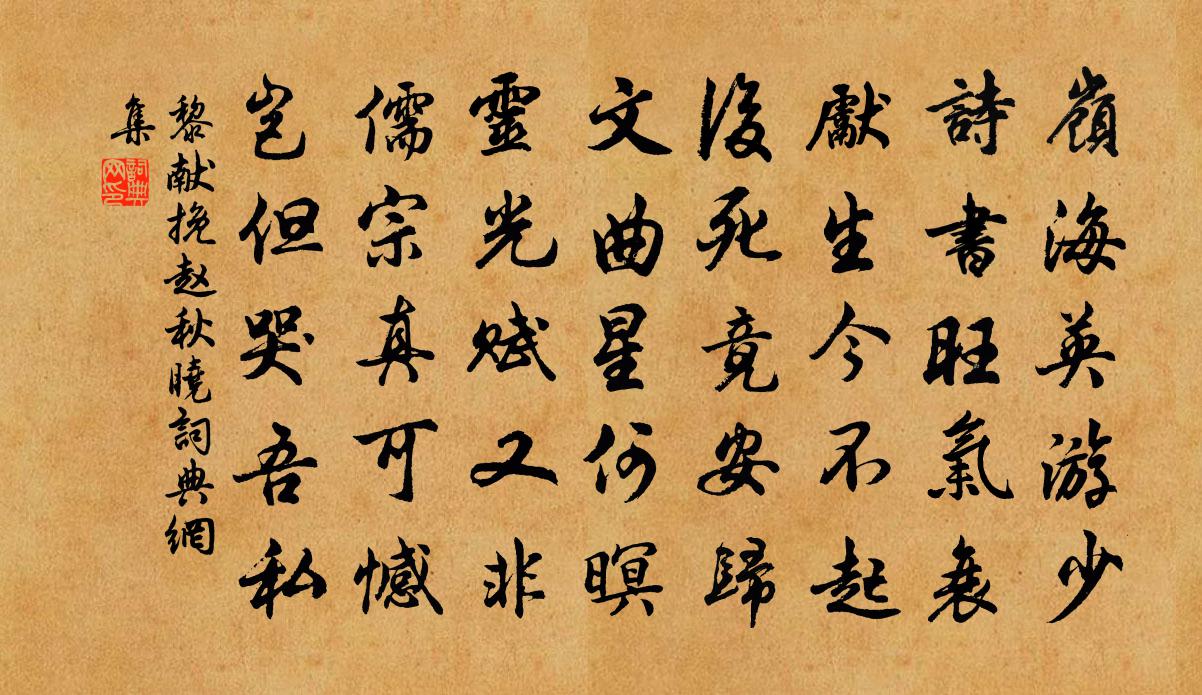 嶺海英游少
詩書旺氣衰
獻生今不起
後死竟安歸
文曲星何暝
靈光賦又非
儒宗真可憾
豈但哭吾私
黎献挽赵秋曉詞典網
集
詞典
网印